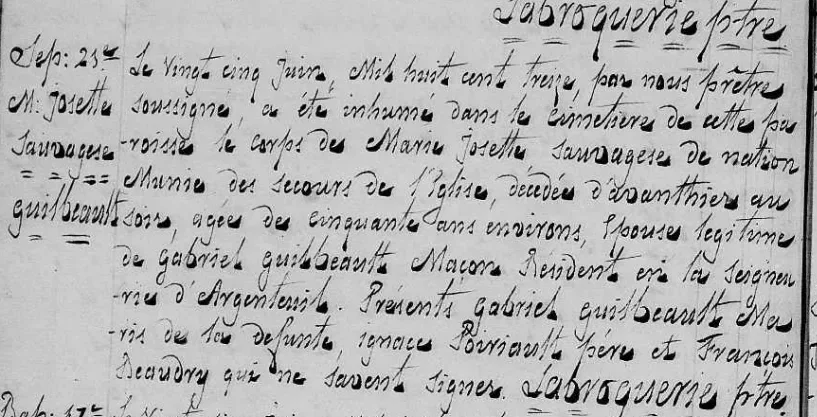 Labroquerie ptre
Sep: 25e
M: Josette
Sauvagese
guilbeault
Le vingt cinq juin, Mil huit cent treize, par nous prêtre
soussigné, a été inhumé dans le cimetiere de cette pa
-roisse le corps de Marie Josette Sauvagese de nation
Munie des secours de l'Eglise, décédée d'avanthier au
soir, agée de cinquante ans environs, Epouse legitime
de Gabriel guilbeault Maçon Résident en la seigneu
-rie d'Argenteuil. Présents gabriel guilbeault Ma
-ris de la defunte, ignace Poiriault pére et François
Beaudry qui ne savent signer. Labroquerie ptre
Bap: 17e